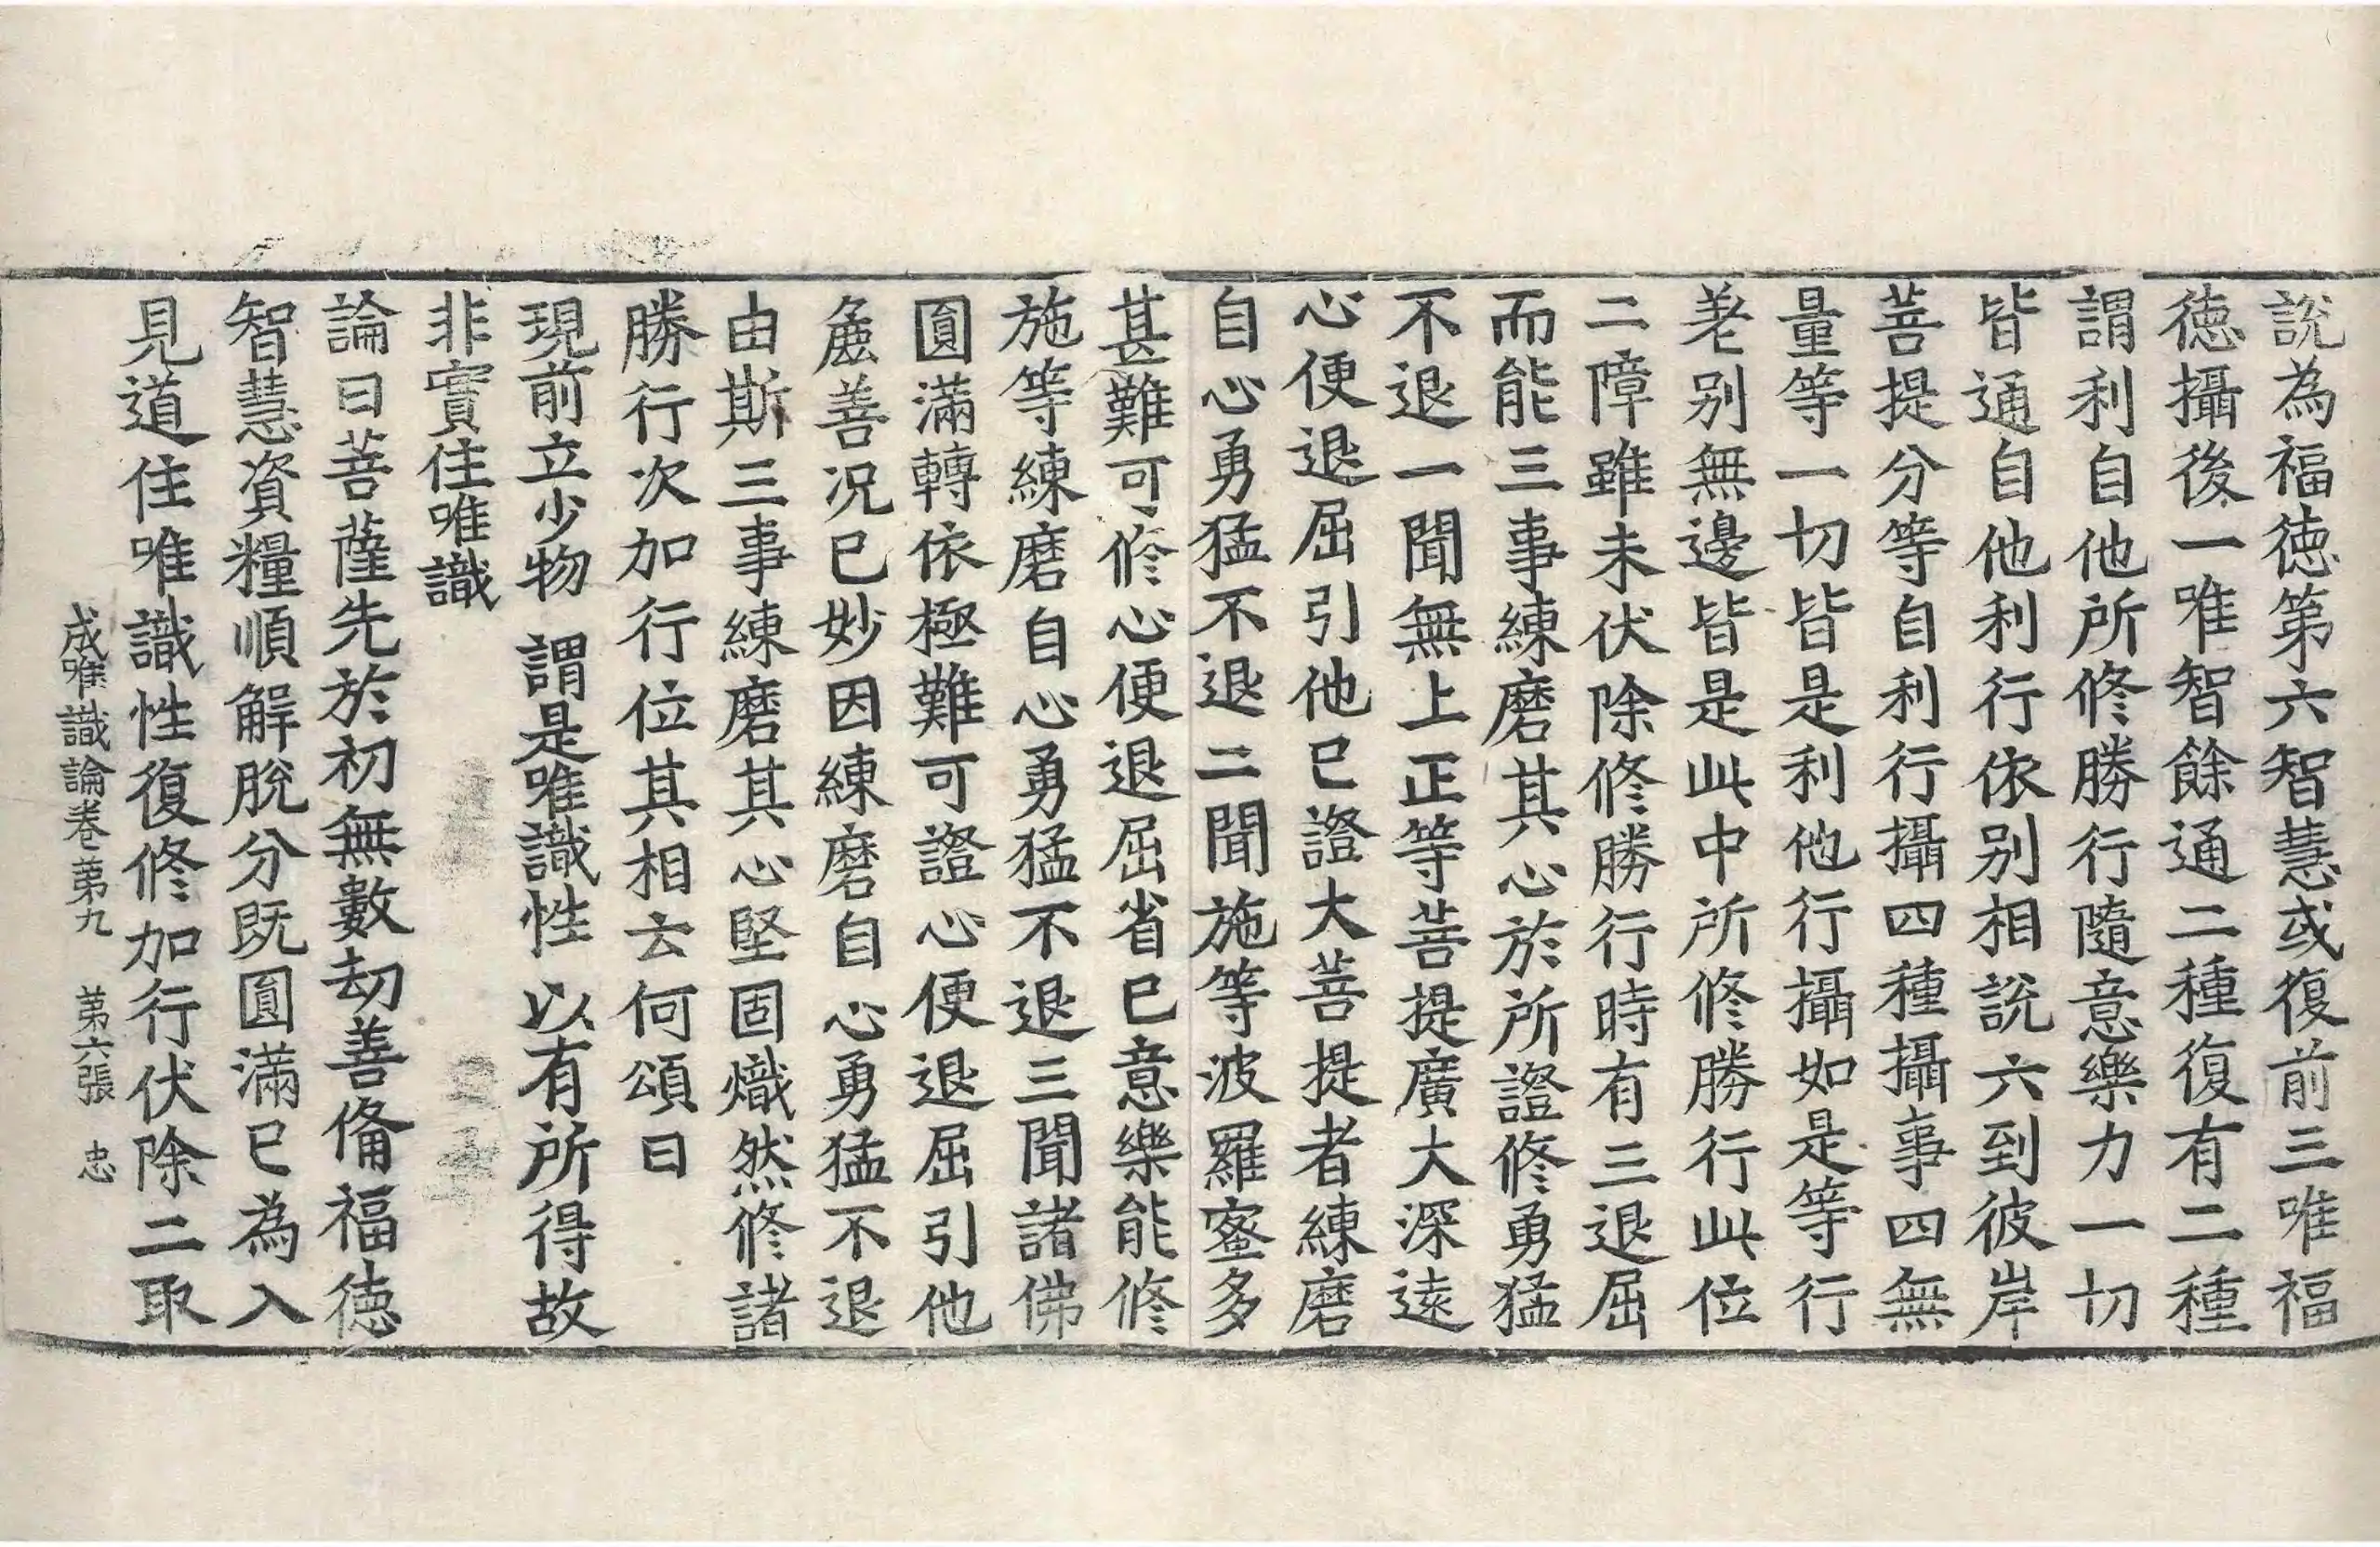 說為福德第六智慧或復前三唯福
德攝後一唯智餘通二種復有二種
謂利自他所修勝行隨意樂力一切
皆通自他利行依别相說六到彼岸
菩提分等自利行攝四種攝事四無
量等一切皆是利他行攝如是等行
差别無邊皆是此中所修勝行此位
二障雖未伏除修勝行時有三退屈
而能三事練磨其心於所證修勇猛
不退一聞無上正等菩提廣大深遠
心便退屈引他已證大菩提者練磨
自心勇猛不退二聞施等波羅蜜多
甚難可修心便退屈省已意樂能修
施等練磨自心勇猛不退三聞諸佛
圓滿轉依極難可證心便退屈引他
麁善況已妙因練磨自心勇猛不退
由斯三事練磨其心堅固熾然修諸
勝行次加行位其相云何頌曰
現前立少物 謂是唯識性 以有所得故
非實住唯識
論曰菩薩先於初無數劫善俻福德
智慧資糧順解脫分既圓滿已為入
見道住唯識性復修加行伏除二取
成唯識論卷苐九 苐六張 忠